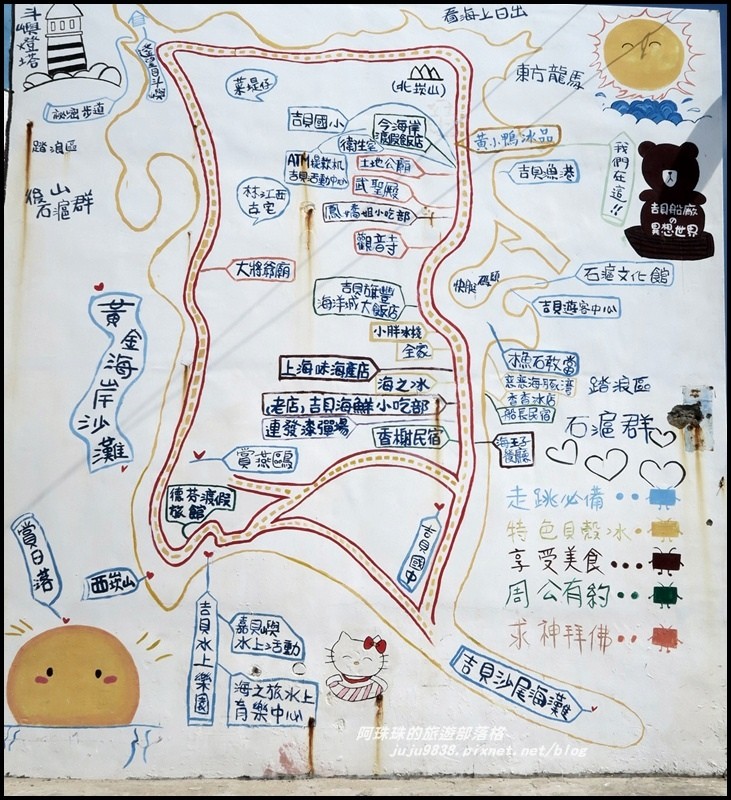 斗嶼燈塔
遙望目斗嶼
看海上日出
東方龍馬
祕密步道
菜堤仔
(北崁山)
踏浪區
後山
石滬群
吉貝國小
今海岸
渡假飯店
衛生室
ATM提款机
吉貝活動中心
土地公廟
黃小鴨冰品
我們在這!!
吉貝漁港
吉貝船廠
の
異想世界
村江西
古宅
武聖殿
鳳嬌姐小吃部
觀音寺
大將爺廟
快艇碼頭
石滬文化館
吉貝遊客中心
吉貝旗豐
海洋城大飯店
小胖冰棧
全家
黃金海岸沙灘
上海味海產店
海之冰
老店,吉貝海鮮小吃部
連發漆彈場
香榭民宿
石敢當
慈慈海豚灣
香香冰店
船長民宿
海王子
後廳
踏浪區
石滬群
賞燕鷗
德芬渡假
旅館
走跳必備
特色貝殼冰
享受美食
周公有約
求神拜佛
吉貝國中
賞日落
西崁山
吉貝水上樂園
嘉貝嶼
水上活動
海之旅水上
育樂中心
吉貝沙尾海灘
阿珠珠的旅遊部落格
juju9838.pixnet.net/blog